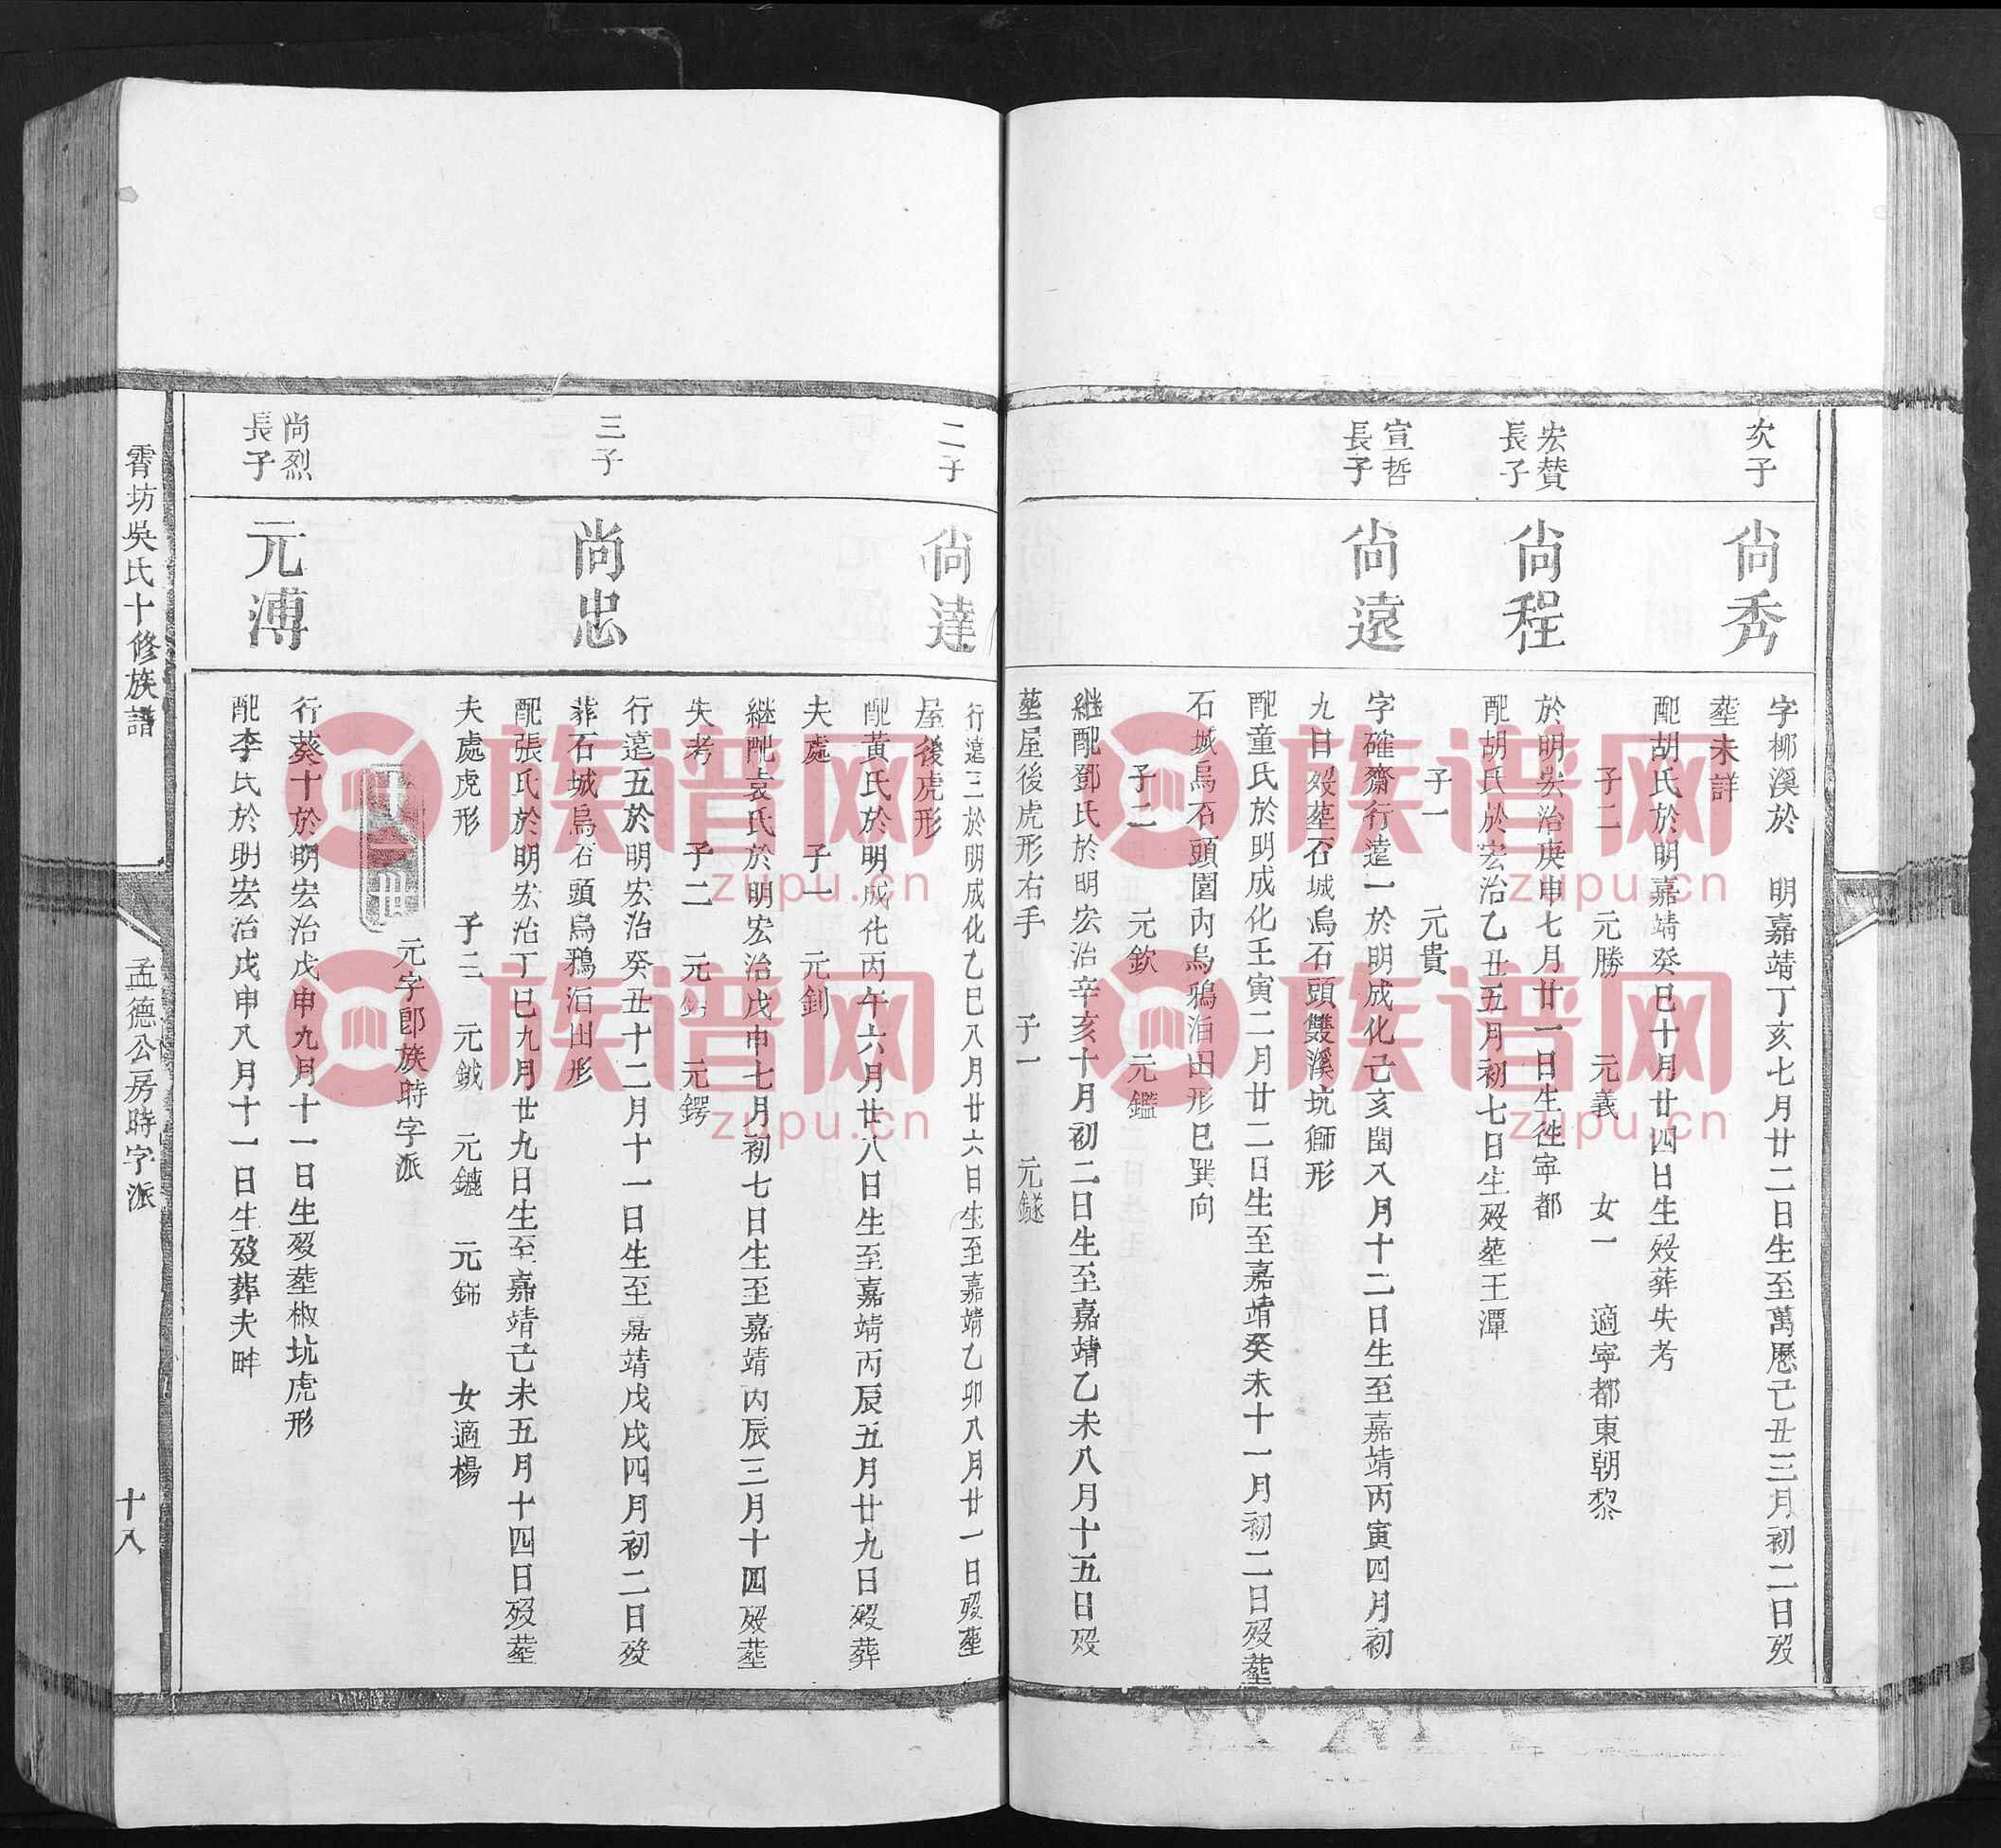 次子
尚秀
字柳溪於　明嘉靖丁亥七月廿二日生至萬歷己丑三月初二日歿
塟未詳
配胡氏於明嘉靖癸巳十月廿四日生歿葬失考
子二　元勝　元義　女一　適寧都東朝黎
宏贊
長子
尚程
於明宏治庚申七月廿一日生徃寧都
配胡氏於宏治乙丑五月初七日生歿塟王潭
子一　元貴
宣哲
長子
尚遠
字確齋行逺一於明成化己亥閏八月十二日生至嘉靖丙寅四月初
九日歿塟石城烏石頭雙溪坑獅形
配童氏於明成化壬寅二月廿二日生至嘉靖癸未十一月初二日歿塟
石城烏石頭圍內烏鴉泊田形巳巽向
子二　元欽　元鑑
継配鄧氏於明宏治辛亥十月初二日生至嘉靖乙未八月十五日歿
塟屋後虎形右手　子一　元鐩
二子
尚達
行逺三於明成化乙巳八月廿六日生至嘉靖乙卯八月廿一日歿塟
屋後虎形
配黃氏於明成化丙午六月廿八日生至嘉靖丙辰五月廿九日歿葬
夫處　子一　元釗
継配袁氏於明宏治戊申七月初七日生至嘉靖丙辰三月十四歿塟
失考　子二　元　元鍔
三子
尚忠
行逺五於明宏治癸丑十二月十一日生至嘉靖戊戌四月初二日歿
葬石城烏石頭烏鴉泊田形
配張氏於明宏治丁巳九月廿九日生至嘉靖己未五月十四日歿塟
夫處虎形　子三　元鉞　元鑣　元鈽　女適楊
十四世
元字即族時字派
尚烈
長子
元溥
行葵十於明宏治戊申九月十一日生歿塟椒坑虎形
配李氏於明宏治戊申八月十一日生歿葬夫畔
霄坊吳氏十修族譜
孟德公房時字派
十八
族谱网
zupu.cn
族谱网
zupu.cn
族谱网
zupu.cn
族谱网
zupu.cn